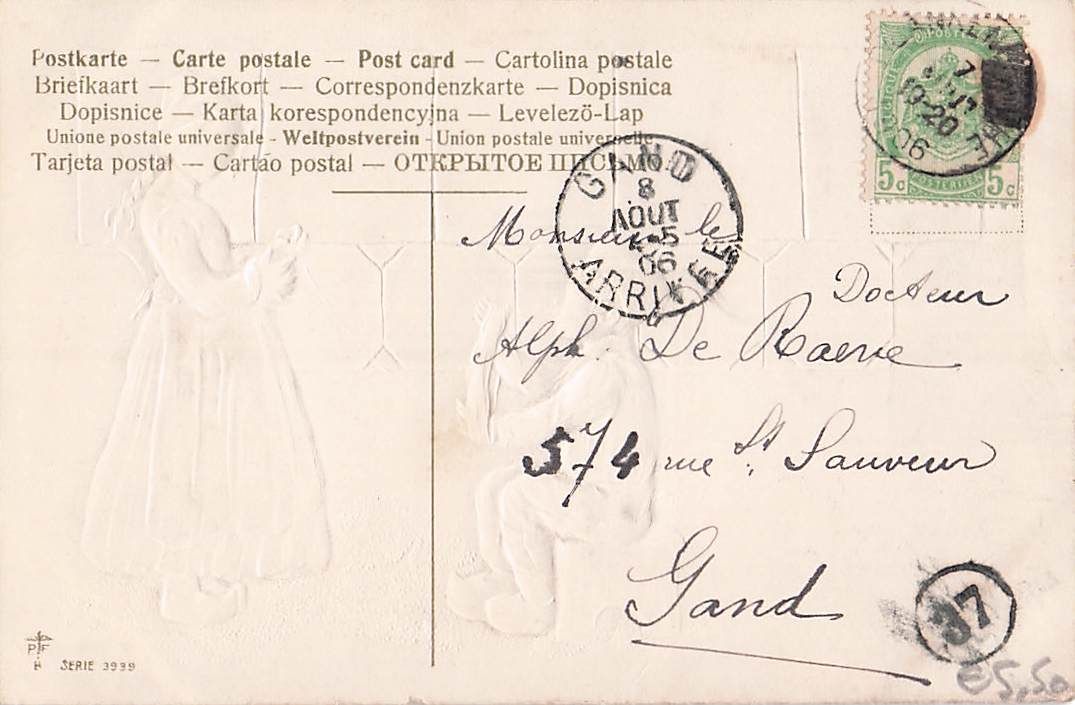 Postkarte — Carte postale — Post card — Cartolina postale
Briefkaart — Brefkort — Correspondenzkarte — Dopisnica
Dopisnice — Karta korespondencyjna — Levelező-Lap
Unione postale universale - Weltpostverein - Union postale universelle
Tarjeta postal — Cartão postal — ОТКРЫТОЕ ПИСЬМО
BELGIQUE
5c POSTERIJEN 5c
10-20
06
GAND
8
AOUT
4-5
06
ARRIVÉE
Monsieur le
Docteur
Alph. De Raeve
574 rue St. Sauveur
Gand
37
PF
SERIE 3939
5,50